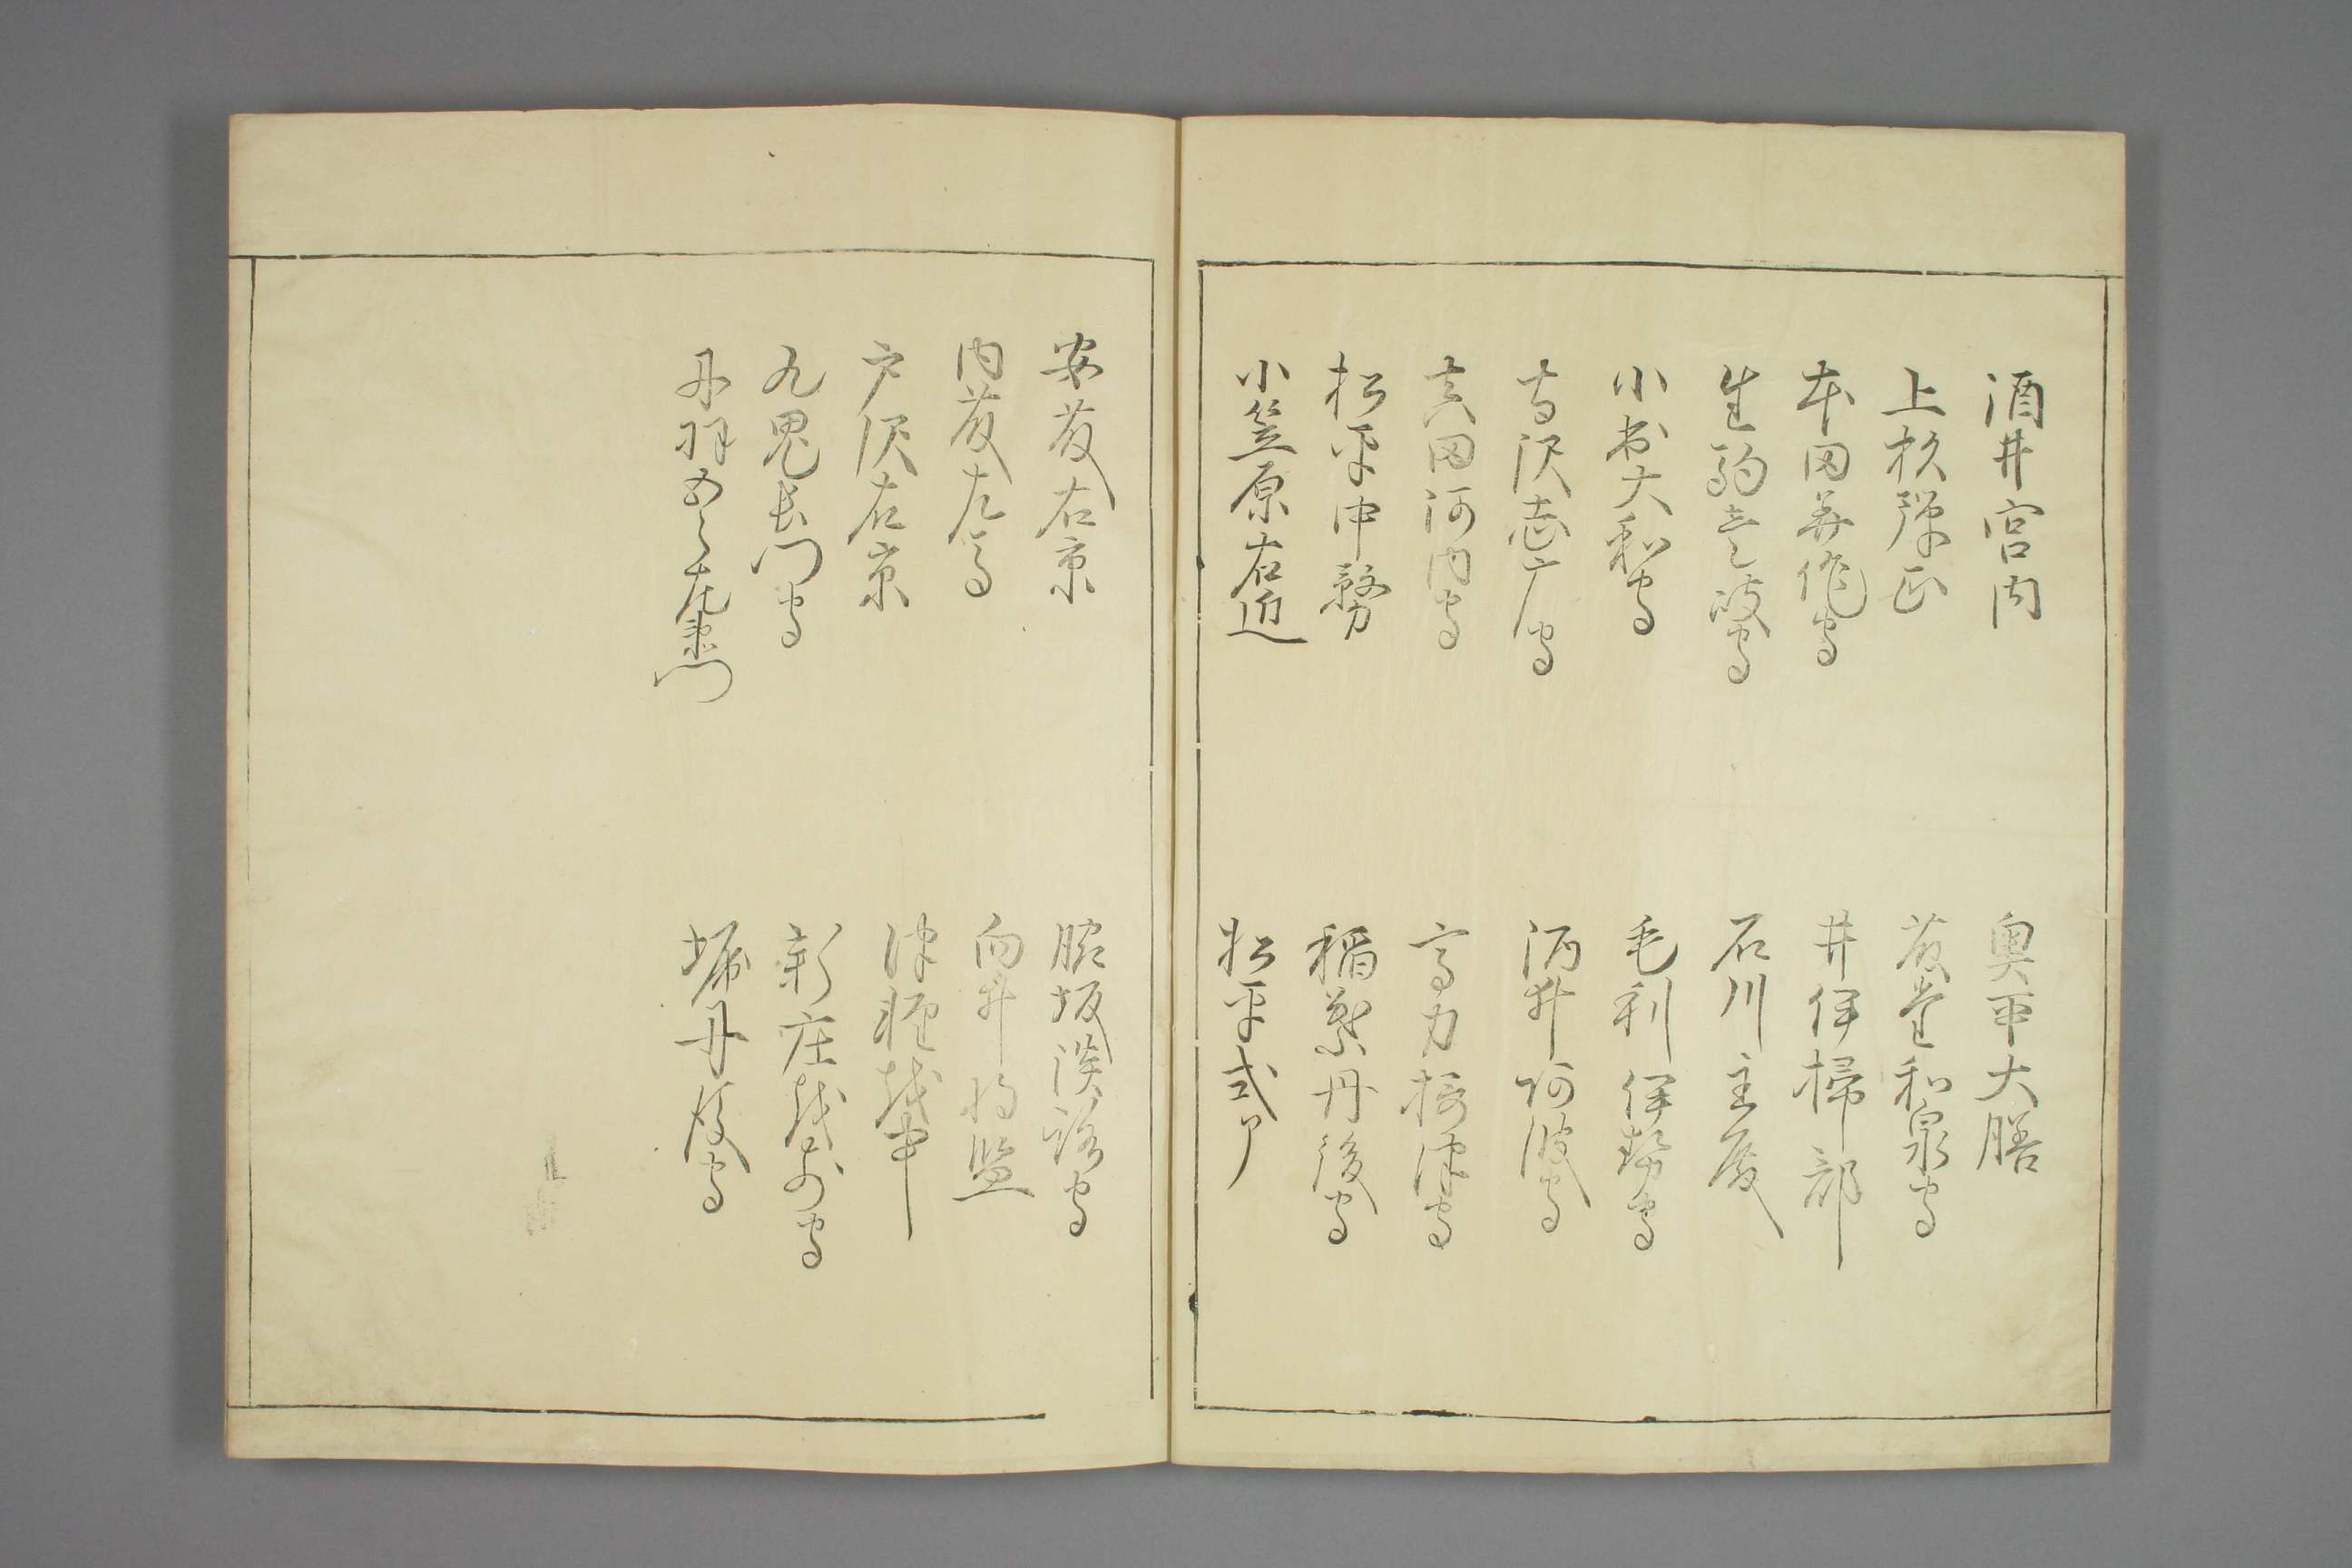 酒井宮内
奥平大膳
上杉弾正
藤堂和泉守
本田美作守
井伊掃部
生駒壱岐守
石川主殿
小出大和守
毛利伊勢守
寺沢志广守
酒井阿波守
真田河内守
高力摂津守
松平中務
稲葉丹後守
小笠原右近
松平式ア
安藤右京
脇坂淡路守
内藤左馬
向井将監
戸沢右京
津軽越中
九鬼長門守
新庄越前守
丹羽五郎左衛門
堀丹後守